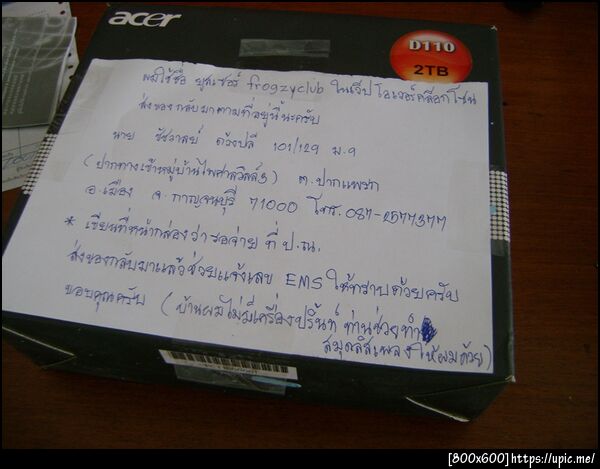 acer
D110
2TB
ผมใช้ชื่อ ยูสเซอร์ frogzyclub ในเว็ป โอเวอร์คล็อกโซน
ส่งของกลับมาตามที่อยู่นี้นะครับ
นาย ชัชวาลย์ ด้วงปลี 101/129 ม.9
(ปากทางเข้าหมู่บ้านไพศาลวิลล์3) ต.ปากแพรก
อ.เมือง จ.กาญจนบุรี 71000 โทร. 087-1577377
* เขียนที่หน้ากล่องว่า รอจ่าย ที่ ป.ณ.
ส่งของกลับมาแล้วช่วยแจ้งเลข EMS ให้ทราบด้วยครับ
ขอบคุณครับ (บ้านผมไม่มีเครื่องปริ้นท์ ท่านช่วยทำ
สมุดลิสเพลงให้ผมด้วย)
[800x600]https://upic.me/